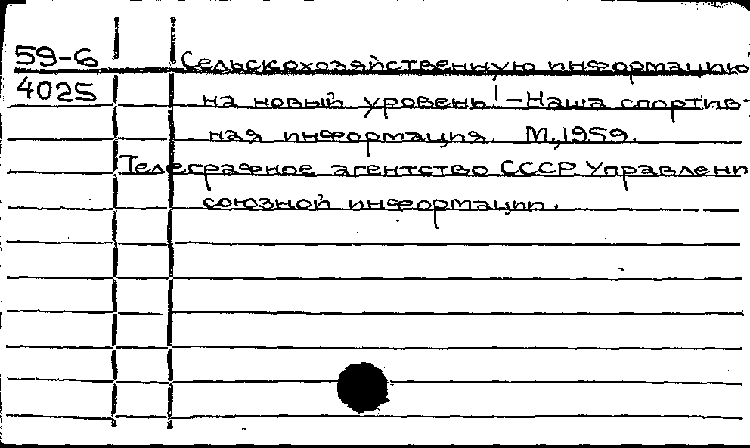 59-6 Сельскохозяйственную информацию
4025 на новый уровень! - Наша спортив-
ная информация. М., 1959.
Телеграфное агентство СССР Управлени
союзной информации.